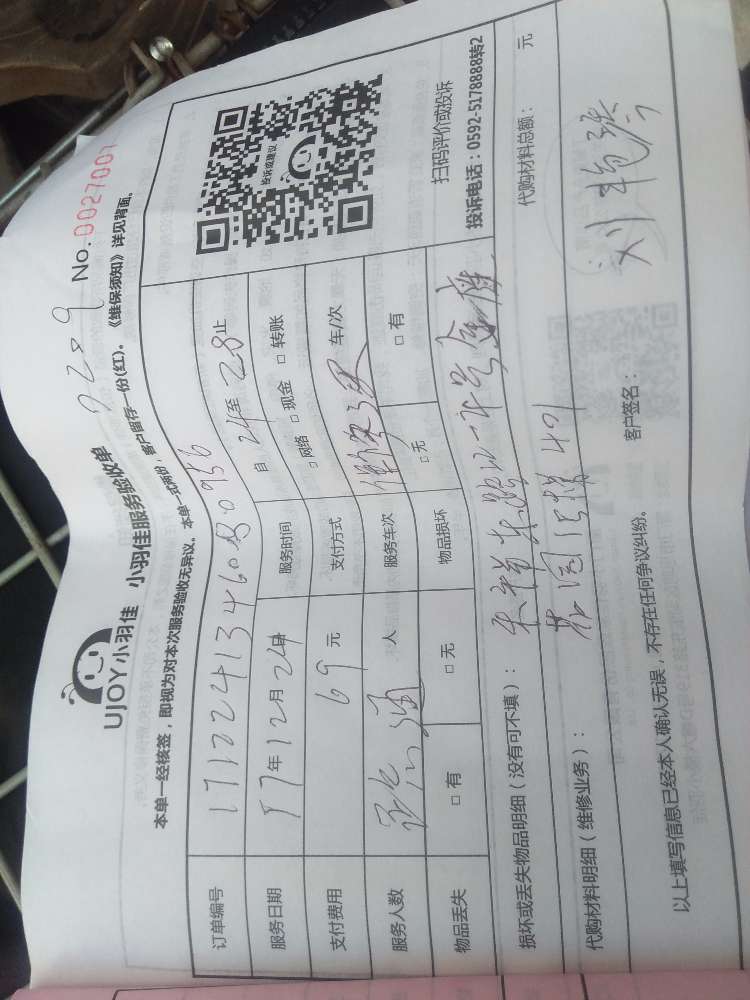 UJOY小羽佳 小羽佳服务验收单 9289 No. 0027007
本单一经核签，即视为对本次服务验收无异议。本单一式两份，客户留存一份(红)。《维保须知》详见背面。
订单编号 171224134608 0956
服务日期 17年12月24日 服务时间 自 24至28止
支付费用 69元 支付方式 □网络 □现金 □转账
服务人数 人 服务车次 车/次
物品丢失 □有 □无 物品损坏 □无 □有
投诉或建议
扫码评价或投诉
投诉电话：0592-5178888转2
损坏或丢失物品明细（没有可不填）：
代购材料明细（维修业务）： 花园 401 代购材料总额： 元
以上填写信息已经本人确认无误，不存在任何争议纠纷。 客户签名： 刘艳